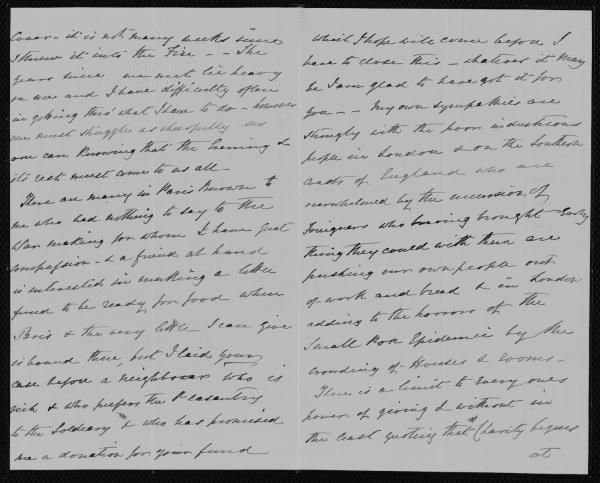 Cover - it is not many weeks since
I threw it into the Fire - - The
years since we met lie heavy
on me and I have difficulty often
in getting thro' what I have to do - however
one must struggle as cheerfully as
one can knowing that the Evening &
its rest must come to us all -
There are many in Paris known to
me who had nothing to say to the
War making for whom I have great
compassion - & a friend at hand
is interested in making a little
fund to be ready for food when
Paris & the very little I can give
is bound there, but I laid your
case before a neighbour who is
rich & who prefers the Peasantry
to the Soldiery & who has promised
me a donation for your fund
which I hope will come before I
have to close this - whatever it may
be I am glad to have got it for
you - - My own sympathies are
strongly with the poor industrious
people in London & on the Southern
coasts of England who are
overwhelmed by the incursion of
Foreigners who having brought Every
thing they could with them are
pushing our own people out
of work and bread & in London
adding to the horrors of the
Small Pox Epidemic by the
crowding of Houses & rooms -
There is a limit to every ones
power of giving & without in
the least quoting that "Charity begins
at